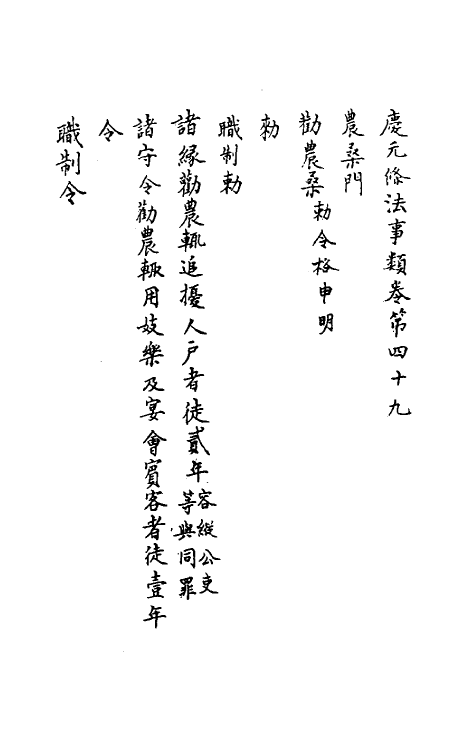 慶元條法事類卷第四十九
農桑門
勸農桑勑令格申明
勑
職制勑
諸緣勸農輒追擾人戶者徒貳年容縱公吏等與同罪
諸守令勸農輒用妓樂及宴會賓客者徒壹年
令
職制令